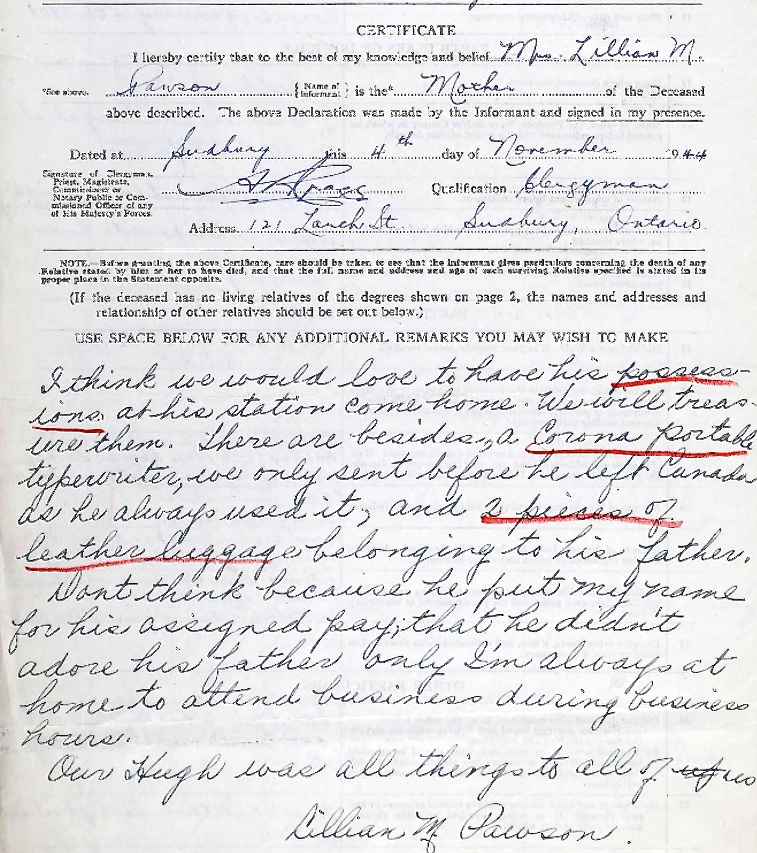 CERTIFICATE
I hereby certify that to the best of my knowledge and belief Mrs. Lillian M.
*See above. Pawson {Name of Informant} is the* Mother of the Deceased
above described. The above Declaration was made by the Informant and signed in my presence.
Dated at Sudbury this 4th day of November 1944
Signature of Clergyman,
Priest, Magistrate,
Commissioner or
Notary Public or Com-
missioned Officer of any
of His Majesty's Forces.
Qualification Clergyman
Address 121 Larch St. Sudbury, Ontario.
NOTE.—Before granting the above Certificate, care should be taken to see that the informant gives particulars concerning the death of any
Relative stated by him or her to have died, and that the full name and address and age of each surviving Relative specified is stated in its
proper place in the Statement opposite.
(If the deceased has no living relatives of the degrees shown on page 2, the names and addresses and
relationship of other relatives should be set out below.)
USE SPACE BELOW FOR ANY ADDITIONAL REMARKS YOU MAY WISH TO MAKE
I think we would love to have his possess-
ions at his station come home. We will treas-
ure them. There are besides, a Corona portable
typewriter, we only sent before he left Canada
as he always used it, and 2 pieces of
leather luggage belonging to his father.
Dont think because he put my name
for his assigned pay, that he didn't
adore his father only I'm always at
home to attend business during business
hours.
Our Hugh was all things to all of us
Lillian M. Pawson.